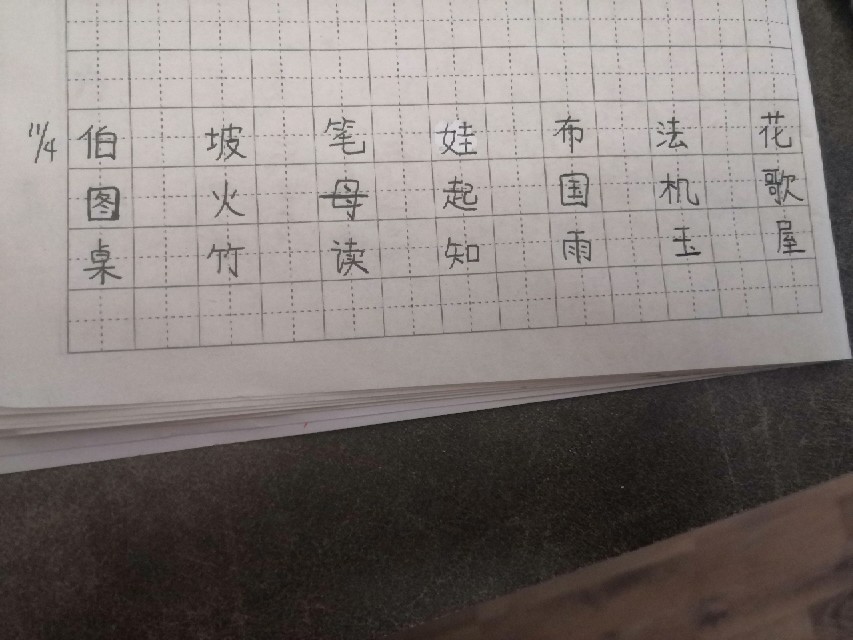 11/4 伯 坡 笔 娃 布 法 花
图 火 母 起 国 机 歌
桌 竹 读 知 雨 玉 屋